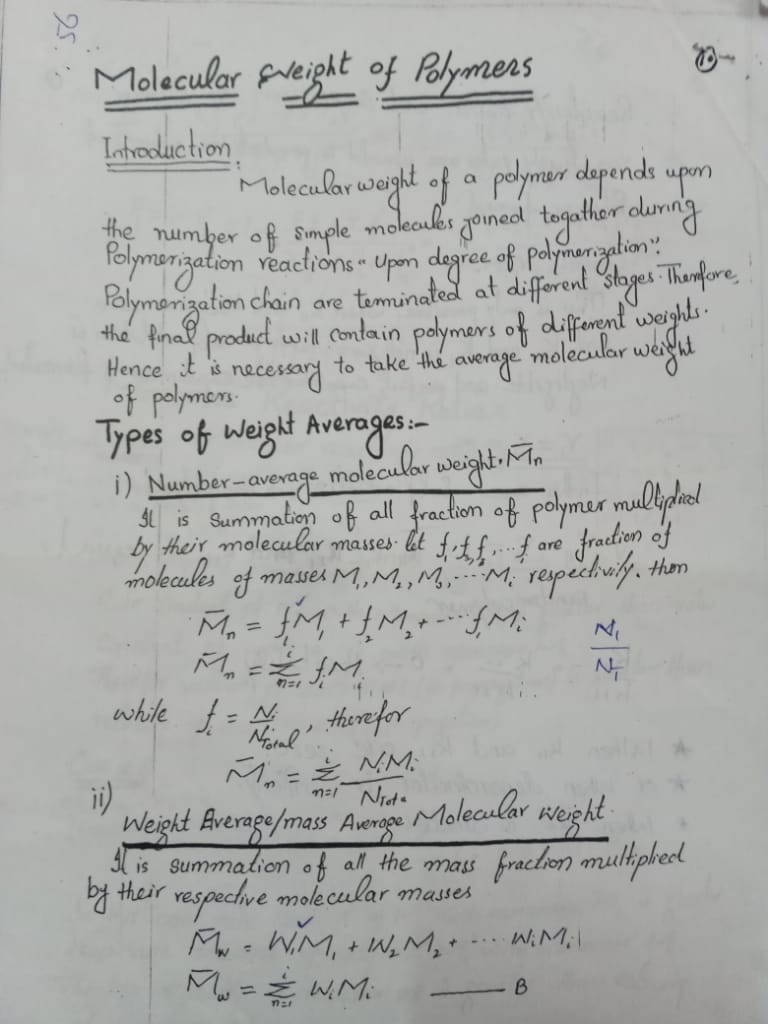 25
10
Molecular Weight of Polymers
Introduction:
Molecular weight of a polymer depends upon
the number of simple molecules joined togather during
Polymerization reactions "Upon degree of polymerization".
Polymerization chain are terminated at different stages. Therefore,
the final product will contain polymers of different weights.
Hence it is necessary to take the average molecular weight
of polymers.
Types of Weight Averages:-
i) Number-average molecular weight. M̄n
It is summation of all fraction of polymer multiplied
by their molecular masses. let f₁, f₂, f₃, ... fᵢ are fraction of
molecules of masses M₁, M₂, M₃, .... Mᵢ respectivily. then
M̄n = f₁M₁ + f₂M₂ + .... fᵢMᵢ
N₁
Nᴛ
M̄n = Σⁱₙ₌₁ fᵢMᵢ
while fᵢ = Nᵢ / NTotal, therefor
M̄n = Σⁱₙ₌₁ NᵢMᵢ / NTot.
ii) Weight Average/mass Average Molecular Weight.
It is summation of all the mass fraction multiplied
by their respective molecular masses
M̄w = W₁M₁ + W₂M₂ + .... WᵢMᵢ
M̄w = Σⁱₙ₌₁ WᵢMᵢ —— B